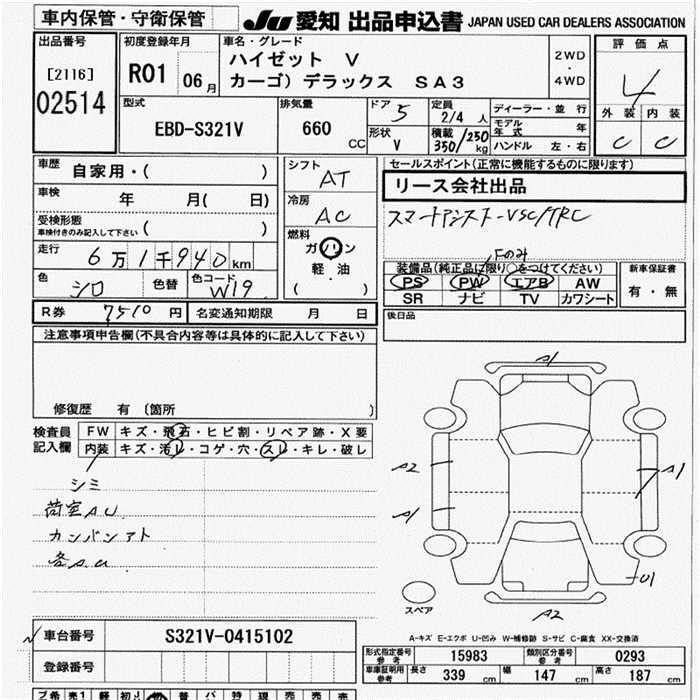 車内保管・守衛保管
JU 愛知 出品申込書 JAPAN USED CAR DEALERS ASSOCIATION
出品番号
[2116]
02514
初度登録年月
R01 06 月
車名・グレード
ハイゼット V
カーゴ) デラックス SA3
2WD
・
4WD
評価点
4
外装 内装
C C
型式
EBD-S321V
排気量
660 CC
ドア 5
形状 V
定員 2/4 人
積載 350/250 kg
ディーラー・並行
モデル年式 年
ハンドル 左・右
車歴 自家用・( )
車検 年 月( 日)
受検形態
車検付きのみ記入して下さい ( )
走行 6万1千940km
色 シロ 色替 色コード W19
シフト AT
冷房 AC
燃料
ガソリン
軽・油
( )
セールスポイント(正常に機能するものに限ります)
リース会社出品
スマートアシスト-VSC/TRC
Fのみ
装備品(純正品に限り○をつけてください)
PS PW エアB AW
SR ナビ TV カワシート
新車保証書
有・無
R券 7510 円 名変通知期限 月 日
後日品
注意事項申告欄(不具合内容等は具体的に記入して下さい)
修復歴 有 (箇所 )
検査員記入欄
FW キズ・飛石・ヒビ割・リペア跡・X要
内装 キズ・汚レ・コゲ・穴・スレ・キレ・破レ
シミ
荷室AU
カンバンアト
各A.U
A1
A2
A1
A1
U1
A2
スペア
A-キズ E-エクボ U-凹み W-補修跡 S-サビ C-腐食 XX-交換済
車台番号 S321V-0415102
登録番号
型式指定番号 参考 15983 類別区分番号 参考 0293
車庫証明用 参考 長さ 339 cm 幅 147 cm 高さ 187 cm